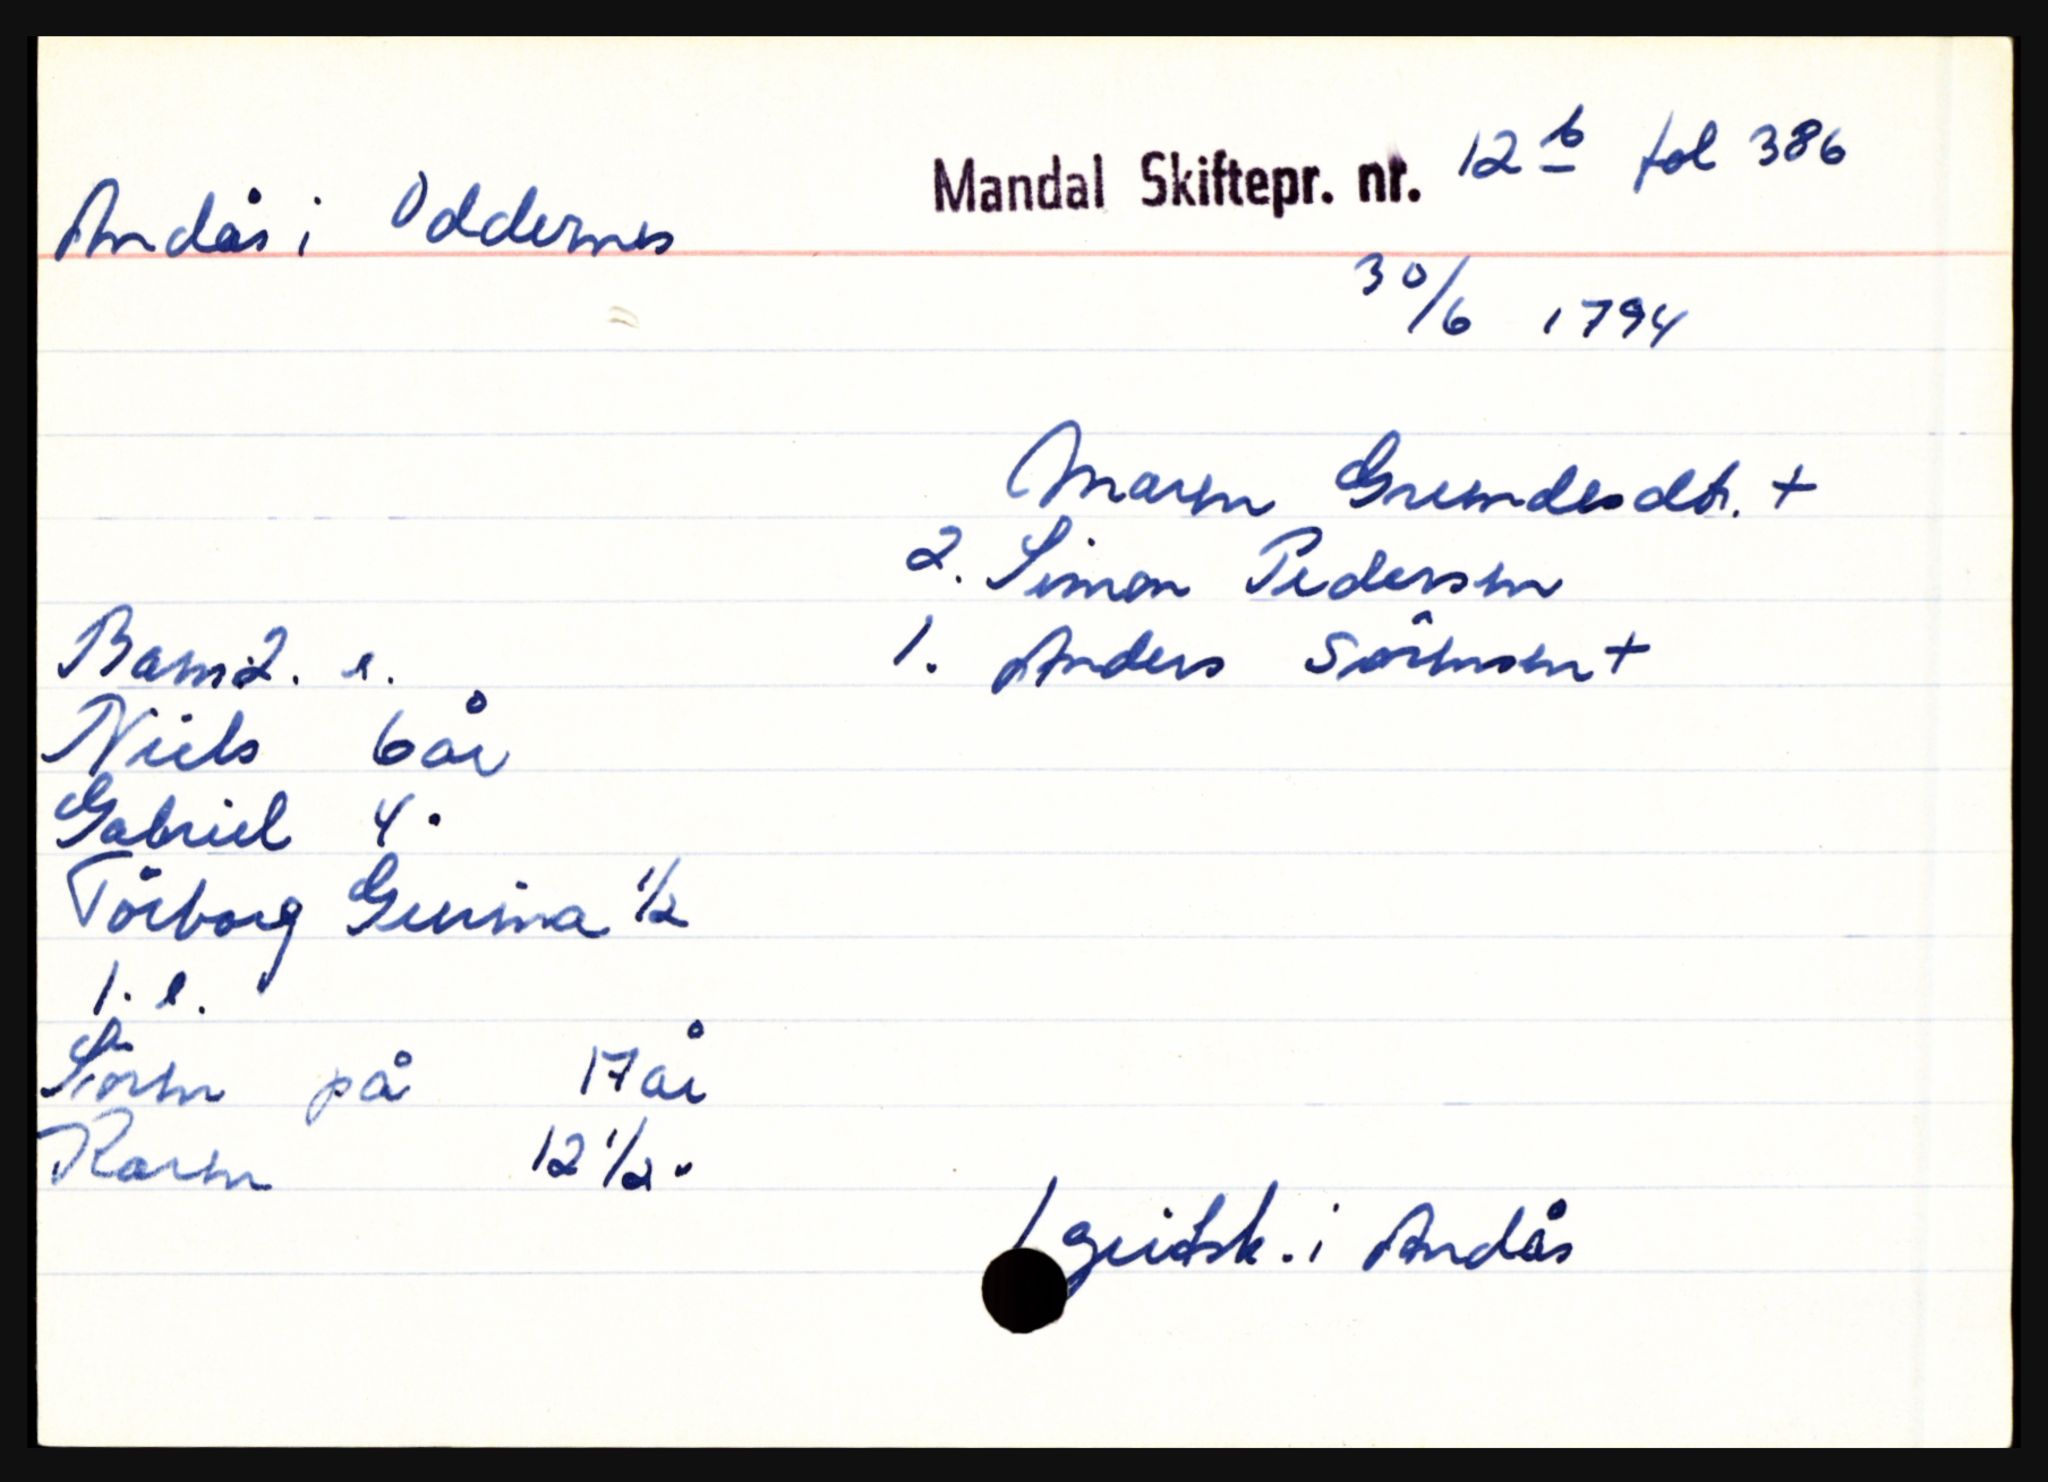 Mandal Skiftepr. nr. 12 b fol 386
Andås i Oddernes
30/6 1794
Maren Gundesdtr. +
2. Simon Pedersen
1. Anders Sörensen +
Barn i 2. e.
Niels 6 år
Gabriel 4 "
Törborg Gurina 1/2
1. e.
Sören på 17 år
Karen 12 1/2 "
/ gritsk. i Andås